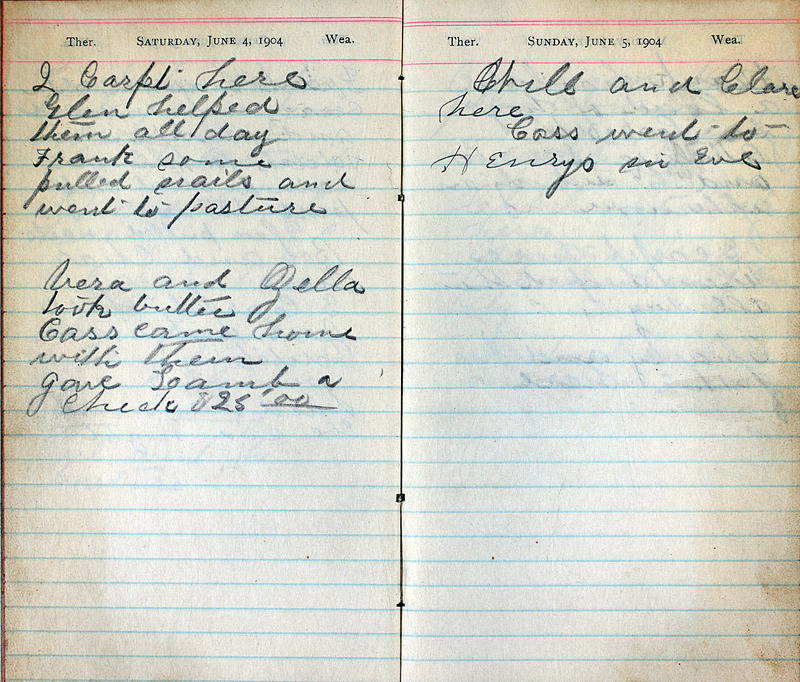 Ther. SATURDAY, JUNE 4, 1904 Wea.
2 Carpt here
Glen helped
them all day
Frank some
pulled nails and
went to pasture
Vera and Zella
took butter
Cass came home
with them
gave Lamb a
Check $25.00
Ther. SUNDAY, JUNE 5, 1904 Wea.
Will and Clare
here
Cass went to
Henrys in Eve